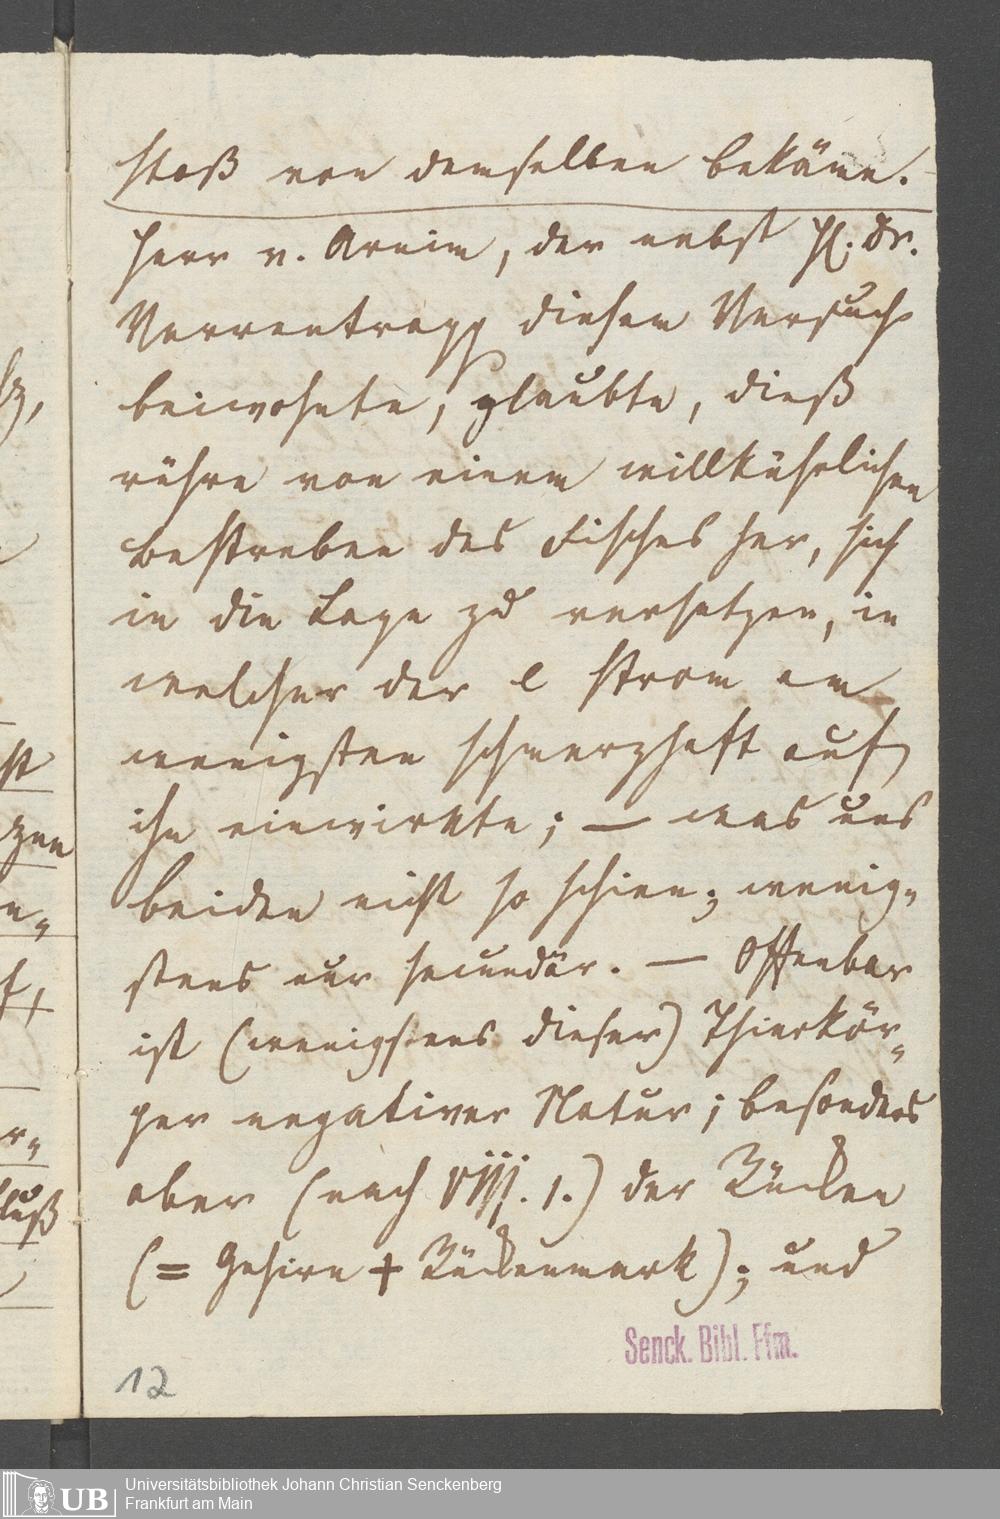 stoß von demselben bekäme.
Herr v. Arnim, der nebst H. Dr.
Varrentrapp diesem Versuch
beiwohnte, glaubte, dieß
rühre von einem willkührlichen
Bestreben des Fisches her, sich
in die Lage zu versetzen, in
welcher der e Strom am
wenigsten schmerzhaft auf
ihn einwirkte; — was uns
beiden nicht so schien; wenig-
stens nur secundär. — Offenbar
ist (wenigstens dieser) Thierkör-
per negativer Natur; besonders
aber (nach VIII. 1.) der Rücken
(= Gehirn + Rückenmark); und
Senck. Bibl. Ffm.
12
UB
Universitätsbibliothek Johann Christian Senckenberg
Frankfurt am Main